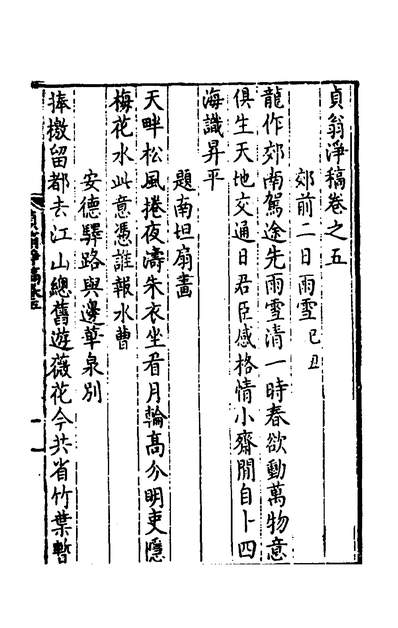 貞翁淨稿卷之五
郊前二日雨雪己丑
龍作郊南駕途先雨雪清一時春欲動萬物意
俱生天地交通日君臣感格情小齋閒自卜四
海識昇平
題南坦扇畵
天畔松風捲夜濤朱衣坐看月輪高分明吏隱
梅花水此意憑誰報水曹
安德驛路與邊華泉別
捧檄留都去江山總舊遊薇花今共省竹葉暫
貞翁淨稿卷五